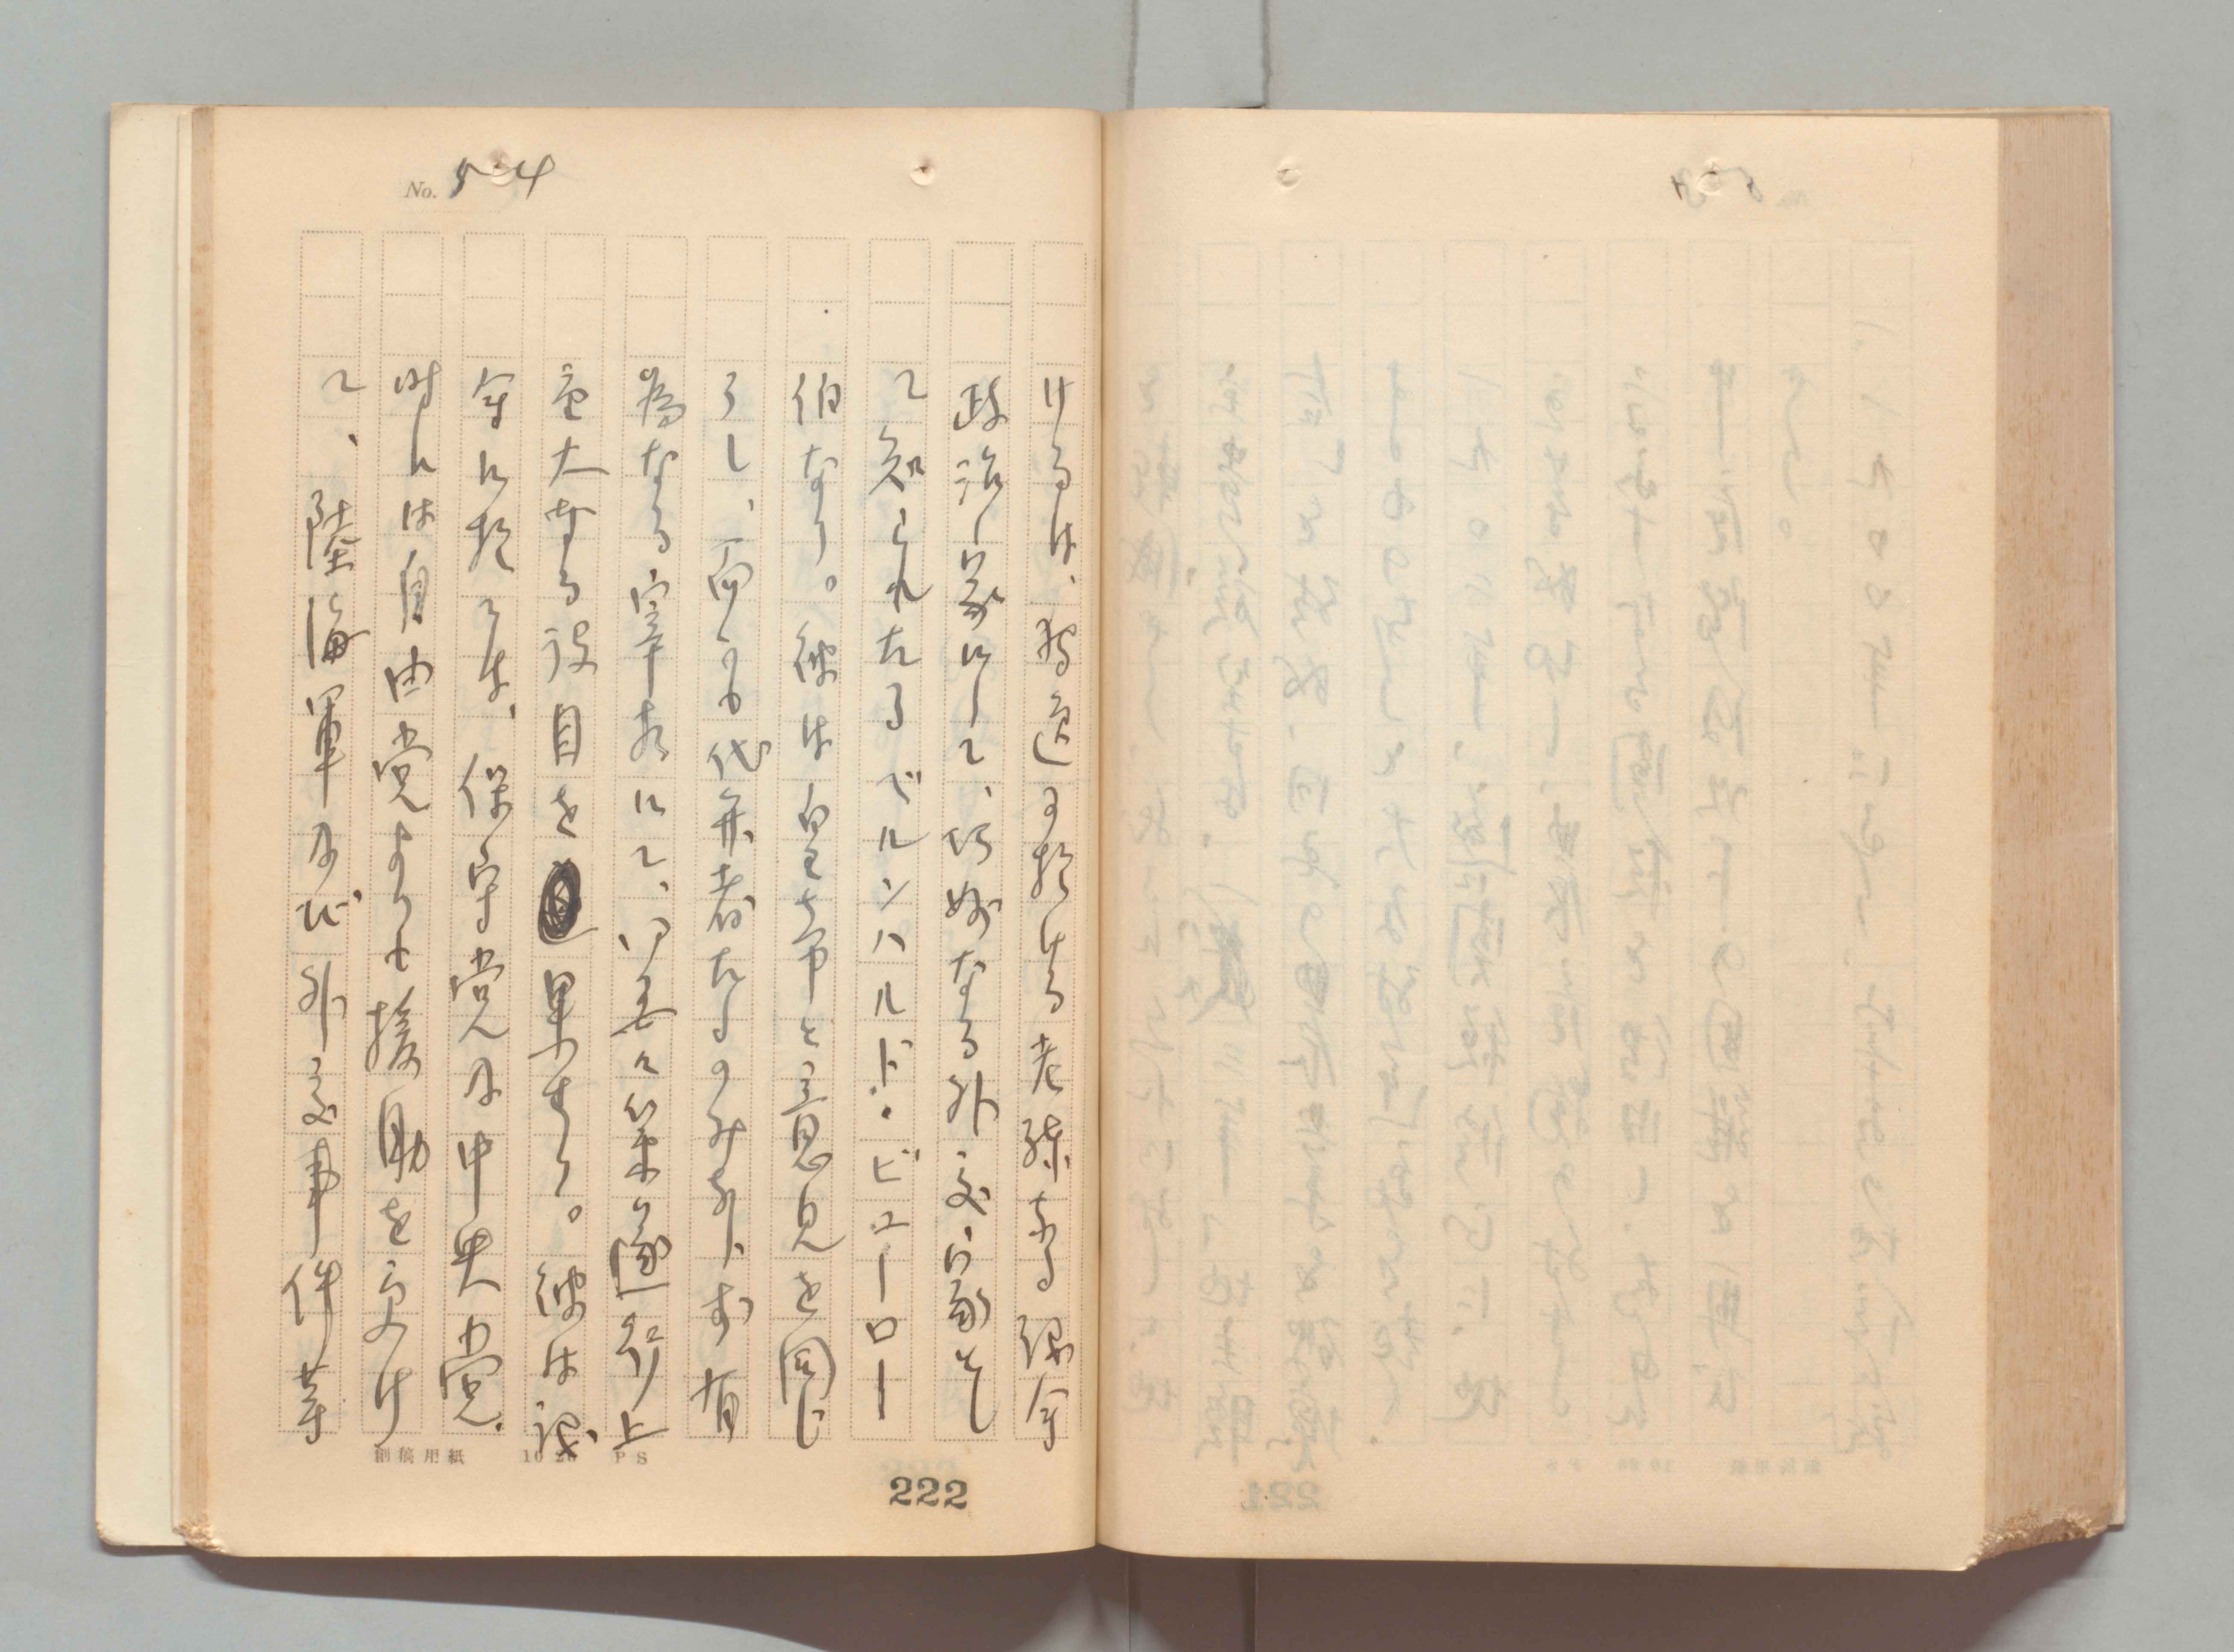 No. 5 4
けるは、独逸に於ける老練なる議会
政治家にして、巧妙なる外交家とし
て知られたるベルンハルド・ビューロー
伯なり。彼は皇帝と意見を同じ
うし、而かも代弁者たるのみならず有
為なる宰相にて、着々策遂行上
重大なる役目を果せり。彼は議
会に於ては、保守党及中央党、
時には自由党よりも援助を受け
て、陸海軍及び外交事件等
創稿用紙 10 20 PS
222